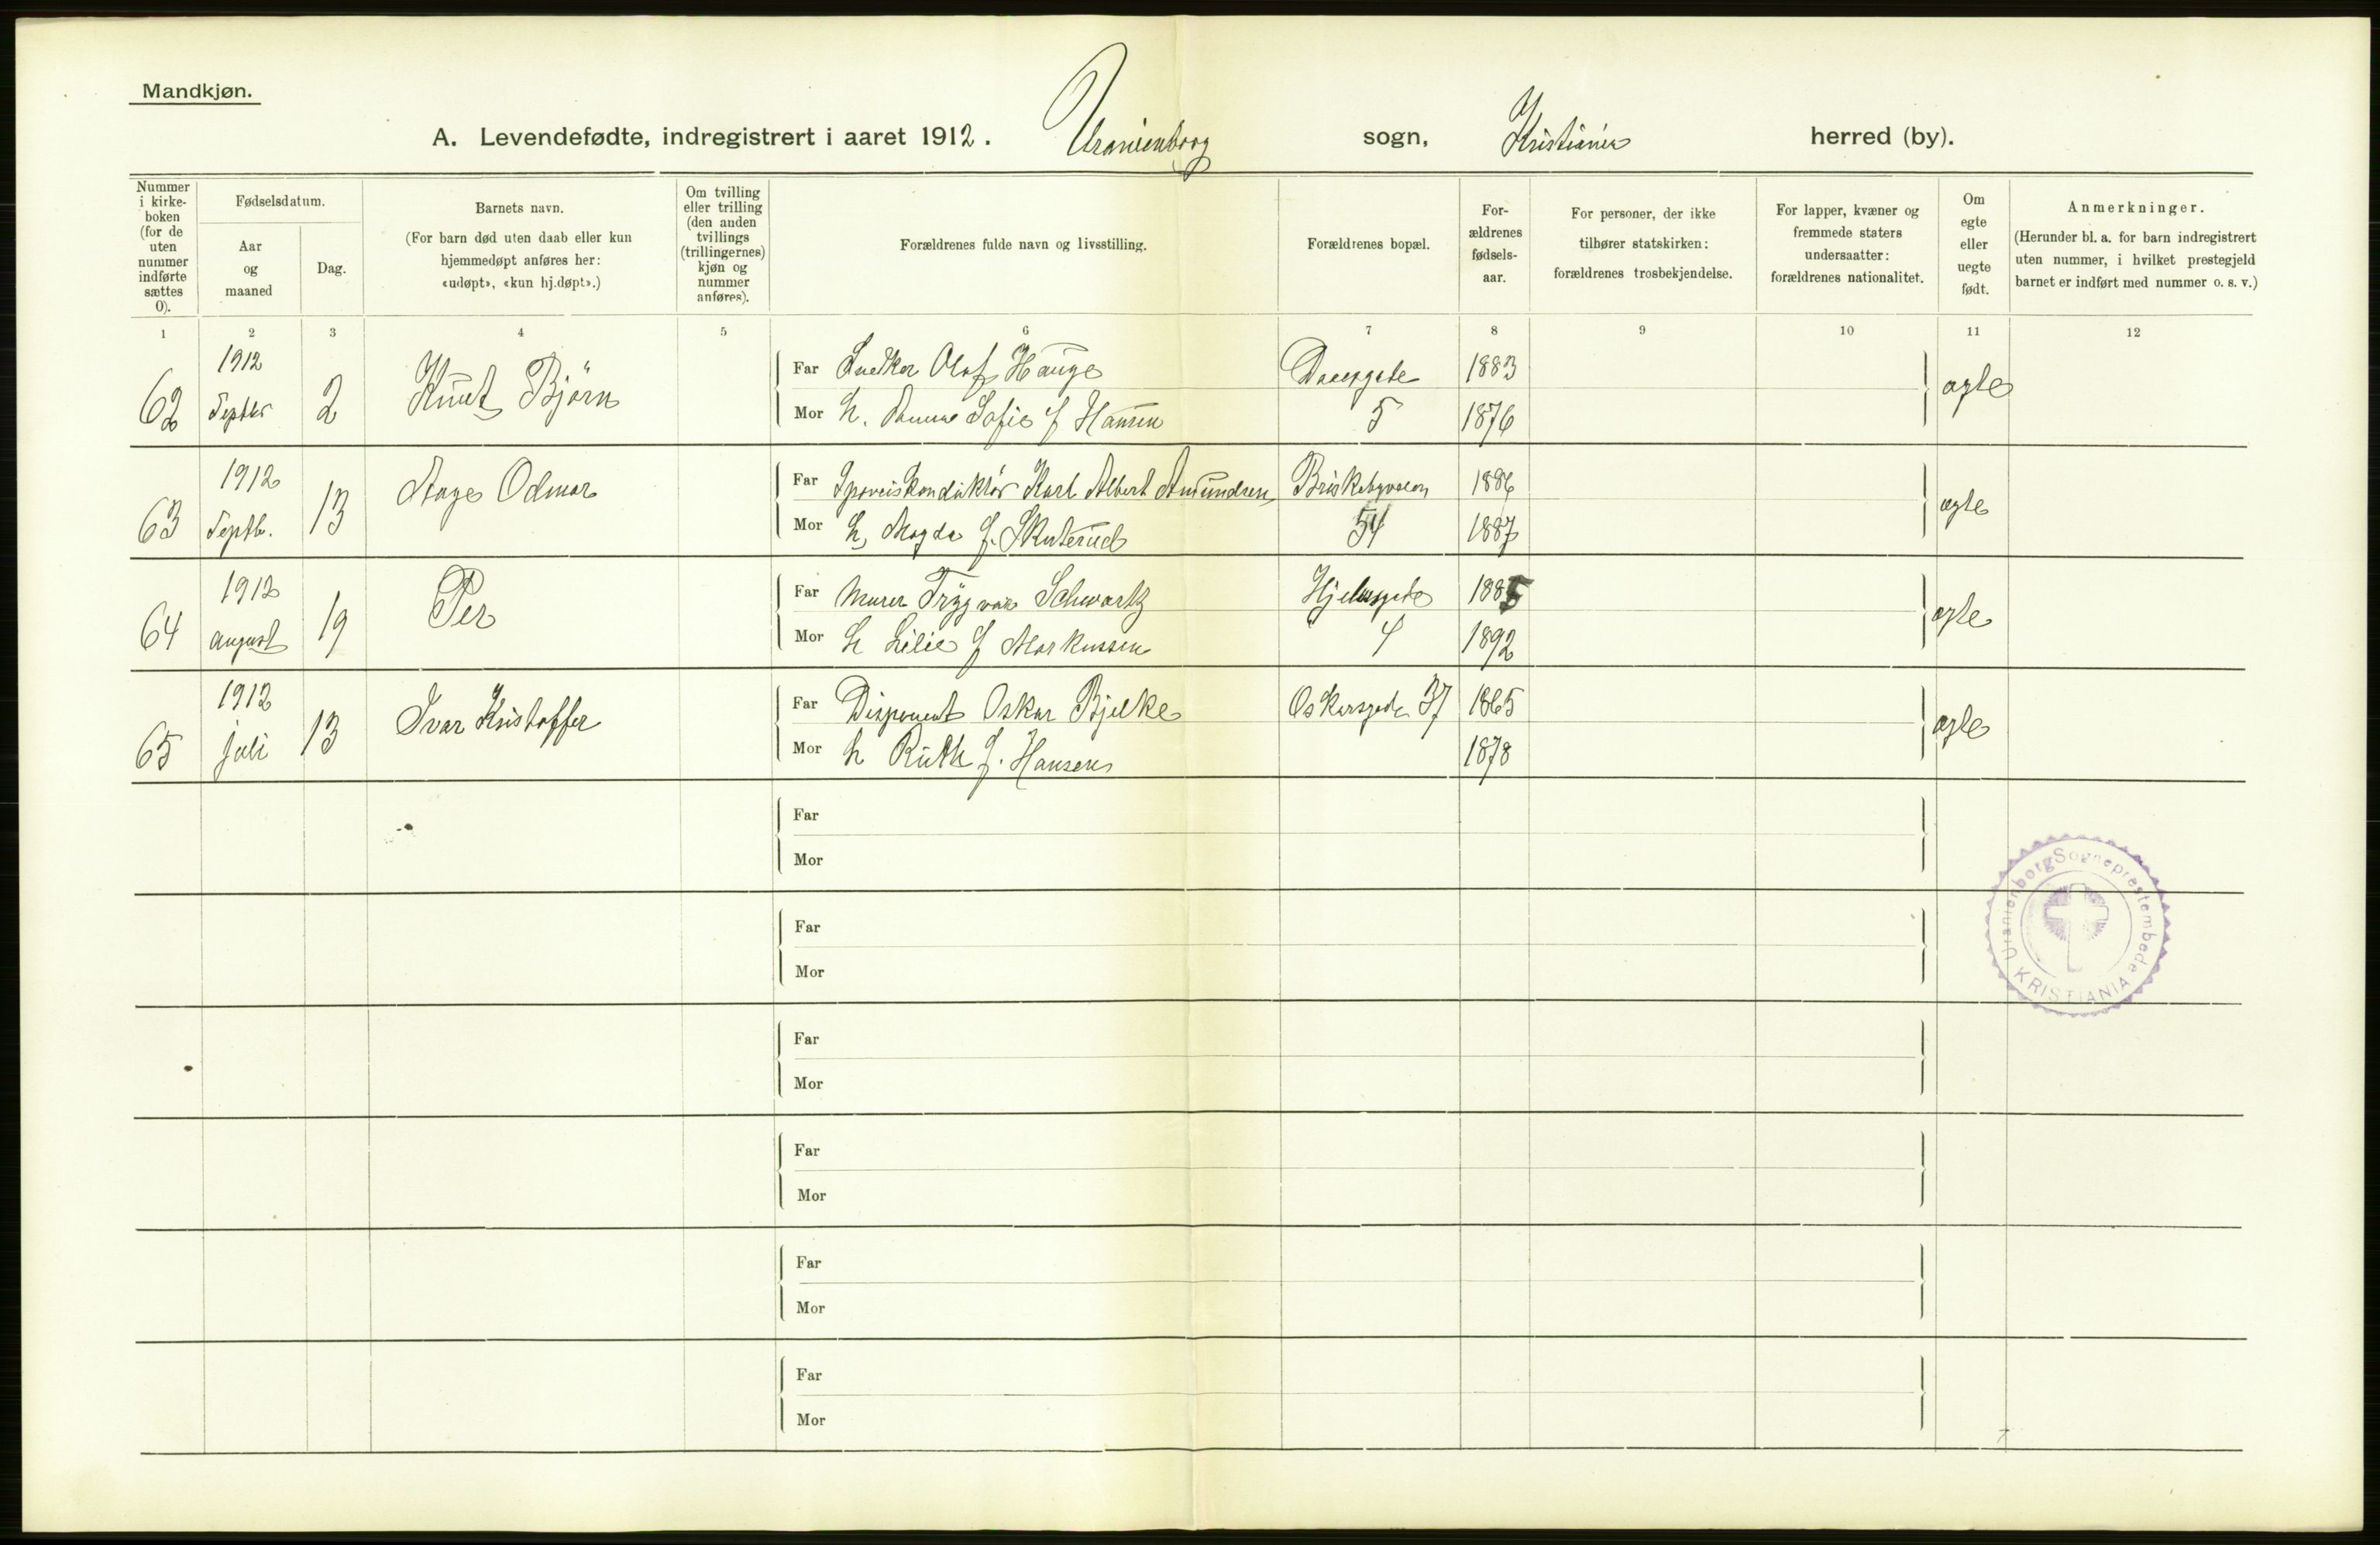 Mandkjøn.
A. Levendefødte, indregistrert i aaret 1912. Uranienborg sogn, Kristiania herred (by).
Nummer i kirke-boken (for de uten nummer indførte sættes 0).
Fødselsdatum.
Aar og maaned
Dag.
Barnets navn.
(For barn død uten daab eller kun hjemmedøpt anføres her: «udøpt», «kun hj.døpt».)
Om tvilling eller trilling (den anden tvillings (trillingernes) kjøn og nummer anføres).
Forældrenes fulde navn og livsstilling.
Forældrenes bopæl.
For-ældrenes fødsels-aar.
For personer, der ikke tilhører statskirken: forældrenes trosbekjendelse.
For lapper, kvæner og fremmede staters undersaatter: forældrenes nationalitet.
Om egte eller uegte født.
Anmerkninger.
(Herunder bl. a. for barn indregistrert uten nummer, i hvilket prestegjeld barnet er indført med nummer o. s. v.)
1 2 3 4 5 6 7 8 9 10 11 12
62 1912 Septbr 2 Knut Björn
Far Snedker Olaf Hauge Daasgate 1883 ægte
Mor h. Sofie f Hansen 5 1876
63 1912 Septb. 13 Aage Odmar
Far Sporveiskonduktör Karl Albert Amundsen Briskebyveien 1886 ægte
Mor h, Magda f. Skuterud 54 1887
64 1912 august 19 Per
Far Murer Trygve Schwartz Hjelmsgate 1885 ægte
Mor h Lilie f Markussen 4 1892
65 1912 juli 13 Ivar Kristoffer
Far Disponent Oskar Bjelke Oskarsgade 37 1865 ægte
Mor h Ruth f. Hansen 1878
Far
Mor
Far
Mor
Far
Mor
Far
Mor
Far
Mor
Far
Mor
Uranienborg Sogneprestembede
KRISTIANIA